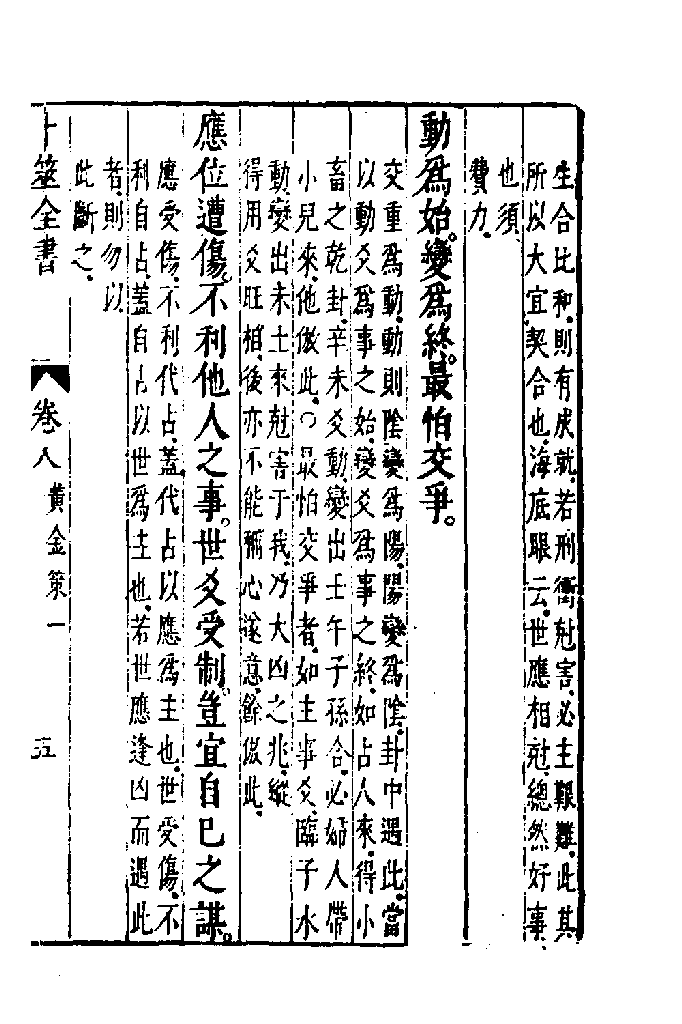 生合比和則有成就若刑衝尅害必主艱難此其
所以大宜契合也海底眼云世應相尅總然好事
也須
費力
動爲始。變爲終。最怕交爭。
交重爲動動則陰變爲陽陽變爲陰卦中遇此當
以動爻爲事之始變爻爲事之終如占人來得小
畜之乾卦辛未爻動變出壬午子孫合必婦人帶
小兒來他倣此○最怕交爭者如主事爻臨子水
動變出未土來尅害于我乃大凶之兆縱
得用爻旺相後亦不能稱心遂意餘倣此
應位遭傷。不利他人之事。世爻受制。豈宜自已之謀。
應受傷不利代占蓋代占以應爲主也世受傷不
利自占蓋自占以世爲主也若世應逢凶而遇此
者則勿以
此斷之
卜筮全書
卷八
黃金策一
五